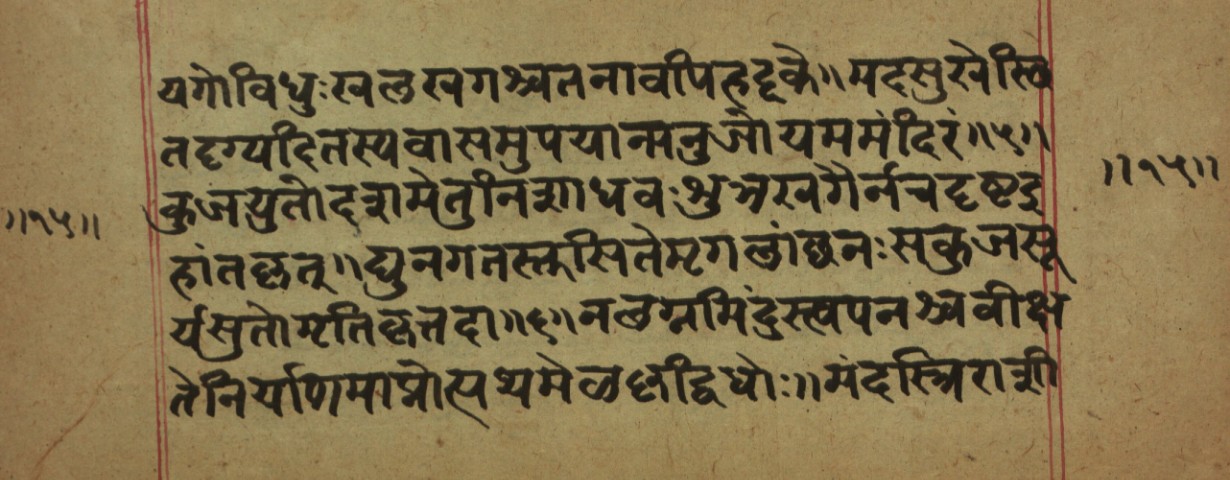 यगोविधुःखलखगश्चतनावीपहदृके॥मदसुखेस्वि
तदृग्यदितस्यवासमुपयान्मनुजोयममंदिरं॥५॥
॥१५॥ कुजयुतोदशमेतुनिशाधवःशुभखगैर्नचदृष्टइ
हांतकृत्॥द्युनगतस्त्वसितेमृगलांछनःसकुजसू
र्यसुतोमृतिकृत्तदा॥६॥नलग्नमिंदुस्त्वपनश्चवीक्ष
तेनिर्याणमाप्नोत्यथमेळछीद्विषोः॥मंदस्त्रिराशी
॥१५॥